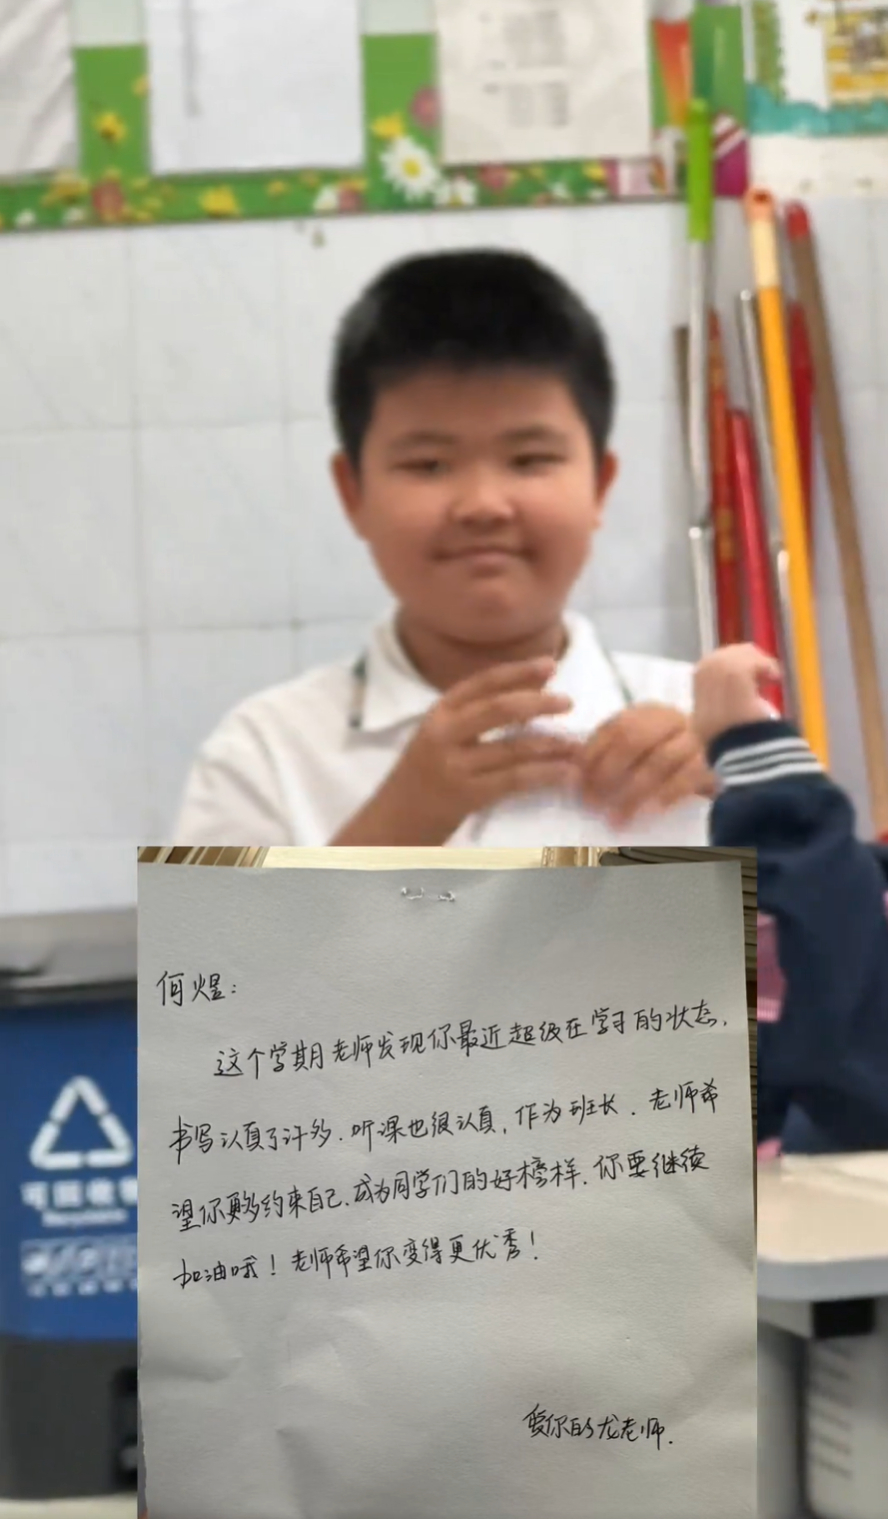 何煜:
这个学期老师发现你最近超级在学习的状态,
书写认真了许多.听课也很认真,作为班长.老师希
望你更够约束自己.成为同学们的好榜样.你要继续
加油哦!老师希望你变得更优秀!
爱你的龙老师.
可回收物
Recyclable